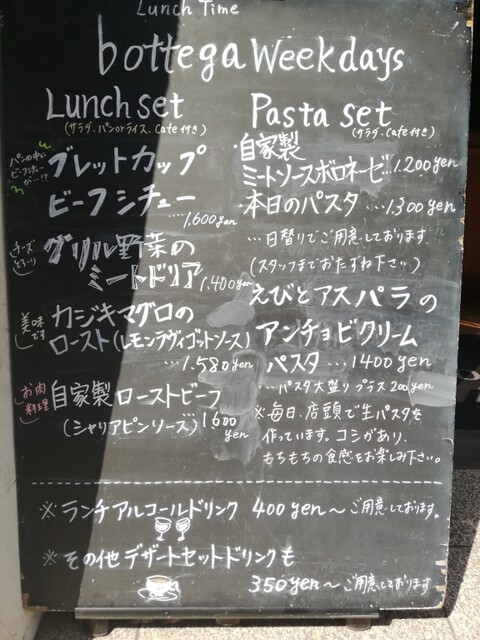 Lunch Time
bottega Weekdays
Lunch set
(サラダ、パンorライス、Cafe付き)
パンの中が
ビーフシチュー
が…!?
ブレットカップ
ビーフシチュー
…1,600yen
チーズ
とろ〜り
グリル野菜の
ミートドリア 1,400yen
美味
です
カジキマグロの
ロースト(レモンラヴィゴットソース)
…1,580yen
お肉
料理
自家製ローストビーフ
(シャリアピンソース) 1600
yen
Pasta set
(サラダ、Cafe付き)
自家製
ミートソースボロネーゼ…1,200yen
本日のパスタ …1,300yen
…日替りでご用意しております
(スタッフまでおたずね下さい)
えびとアスパラの
アンチョビクリーム
パスタ …1400yen
…パスタ大盛り プラス200yen
※毎日、店頭で生パスタを
作っています。コシがあり、
もちもちの食感をお楽しみ下さい。
※ランチアルコールドリンク 400yen〜ご用意しております。
※その他デザートセットドリンクも
350yen〜ご用意しております